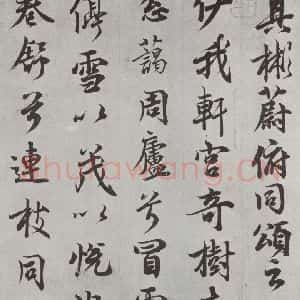 其彬蔚俯同頌云
伊我軒宮奇樹
藹周廬兮冒
停雪以茂以悅
卷舒兮連枝同
shufawang.cn